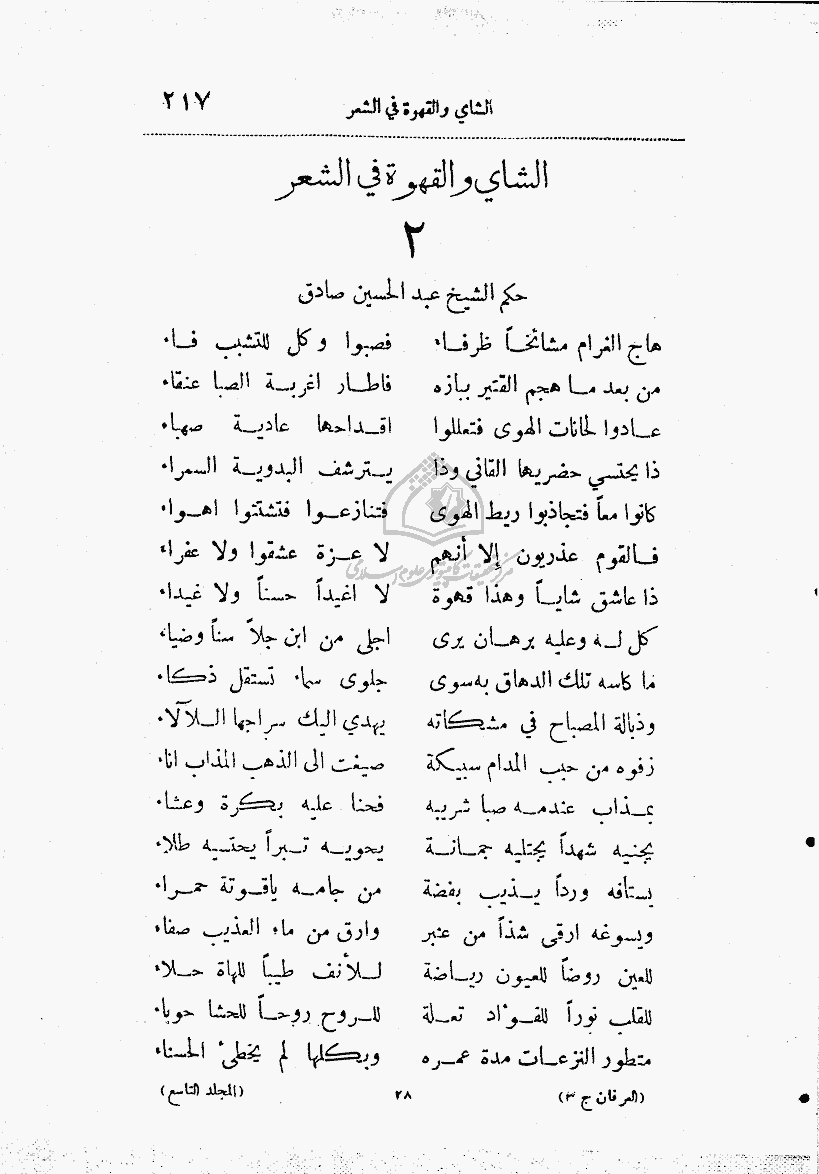 الشاي والقهوة في الشعر ٢١٧
الشاي والقهوة في الشعر
٢
حكم الشيخ عبد الحسين صادق
هاج الغرام مشائخاً ظرفاء فصبوا وكل للتشبب فاء
من بعد مـا هجم القتير ببازه فاطـار اغربـة الصبا عنقاء
عـادوا لحانات الهوى فتعللوا اقـداحها عاديـة صهباء
ذا يحتسي حضريها القاني وذا يـترشف البدويـة السمراء
كانوا معاً فتجاذبوا ريط الهوى فتنازعـوا فتشتتوا اهـواء
فـالقوم عذريون إلا أنهم لا عـزة عشقوا ولا عفراء
ذا عاشق شايـاً وهذا قهوة لا اغيداً حسناً ولا غيداء
كل لـه وعليه برهـان يرى اجلى من ابن جلاً سناً وضياء
ما كاسه تلك الدهاق به سوى جلوى سماء تستقل ذكاء
وذبالة المصباح في مشكاته يهدي اليك سراجها الـلآلاء
زفوه من حبب المدام سبيكة صيغت الى الذهب المذاب اناء
بمـذاب عندمـه صبا شريبه فحنا عليه بكرة وعشاء
يجنيه شهداً يجتليه جمـانـة يحويـه تـبراً يحتسيه طلاء
يستافه ورداً يـذيب بفضة من جامـه ياقـوتة حمـراء
ويسوغه ارقى شذاً من عنبر وارق من ماء العذيب صفاء
للعين روضاً للعيون ريـاضة لـلأنف طيباً للهاة حـلاء
للقلب نوراً للفـؤاد تعـلة للـروح روحـاً للحشا حوباء
متطور النزعـات مدة عمـره وبكلها لم يخطئ الحسناء
(العرفان ج ٣) ٢٨ (المجلد التاسع)
مركز تحقيقات كامپيوتري علوم اسلامي